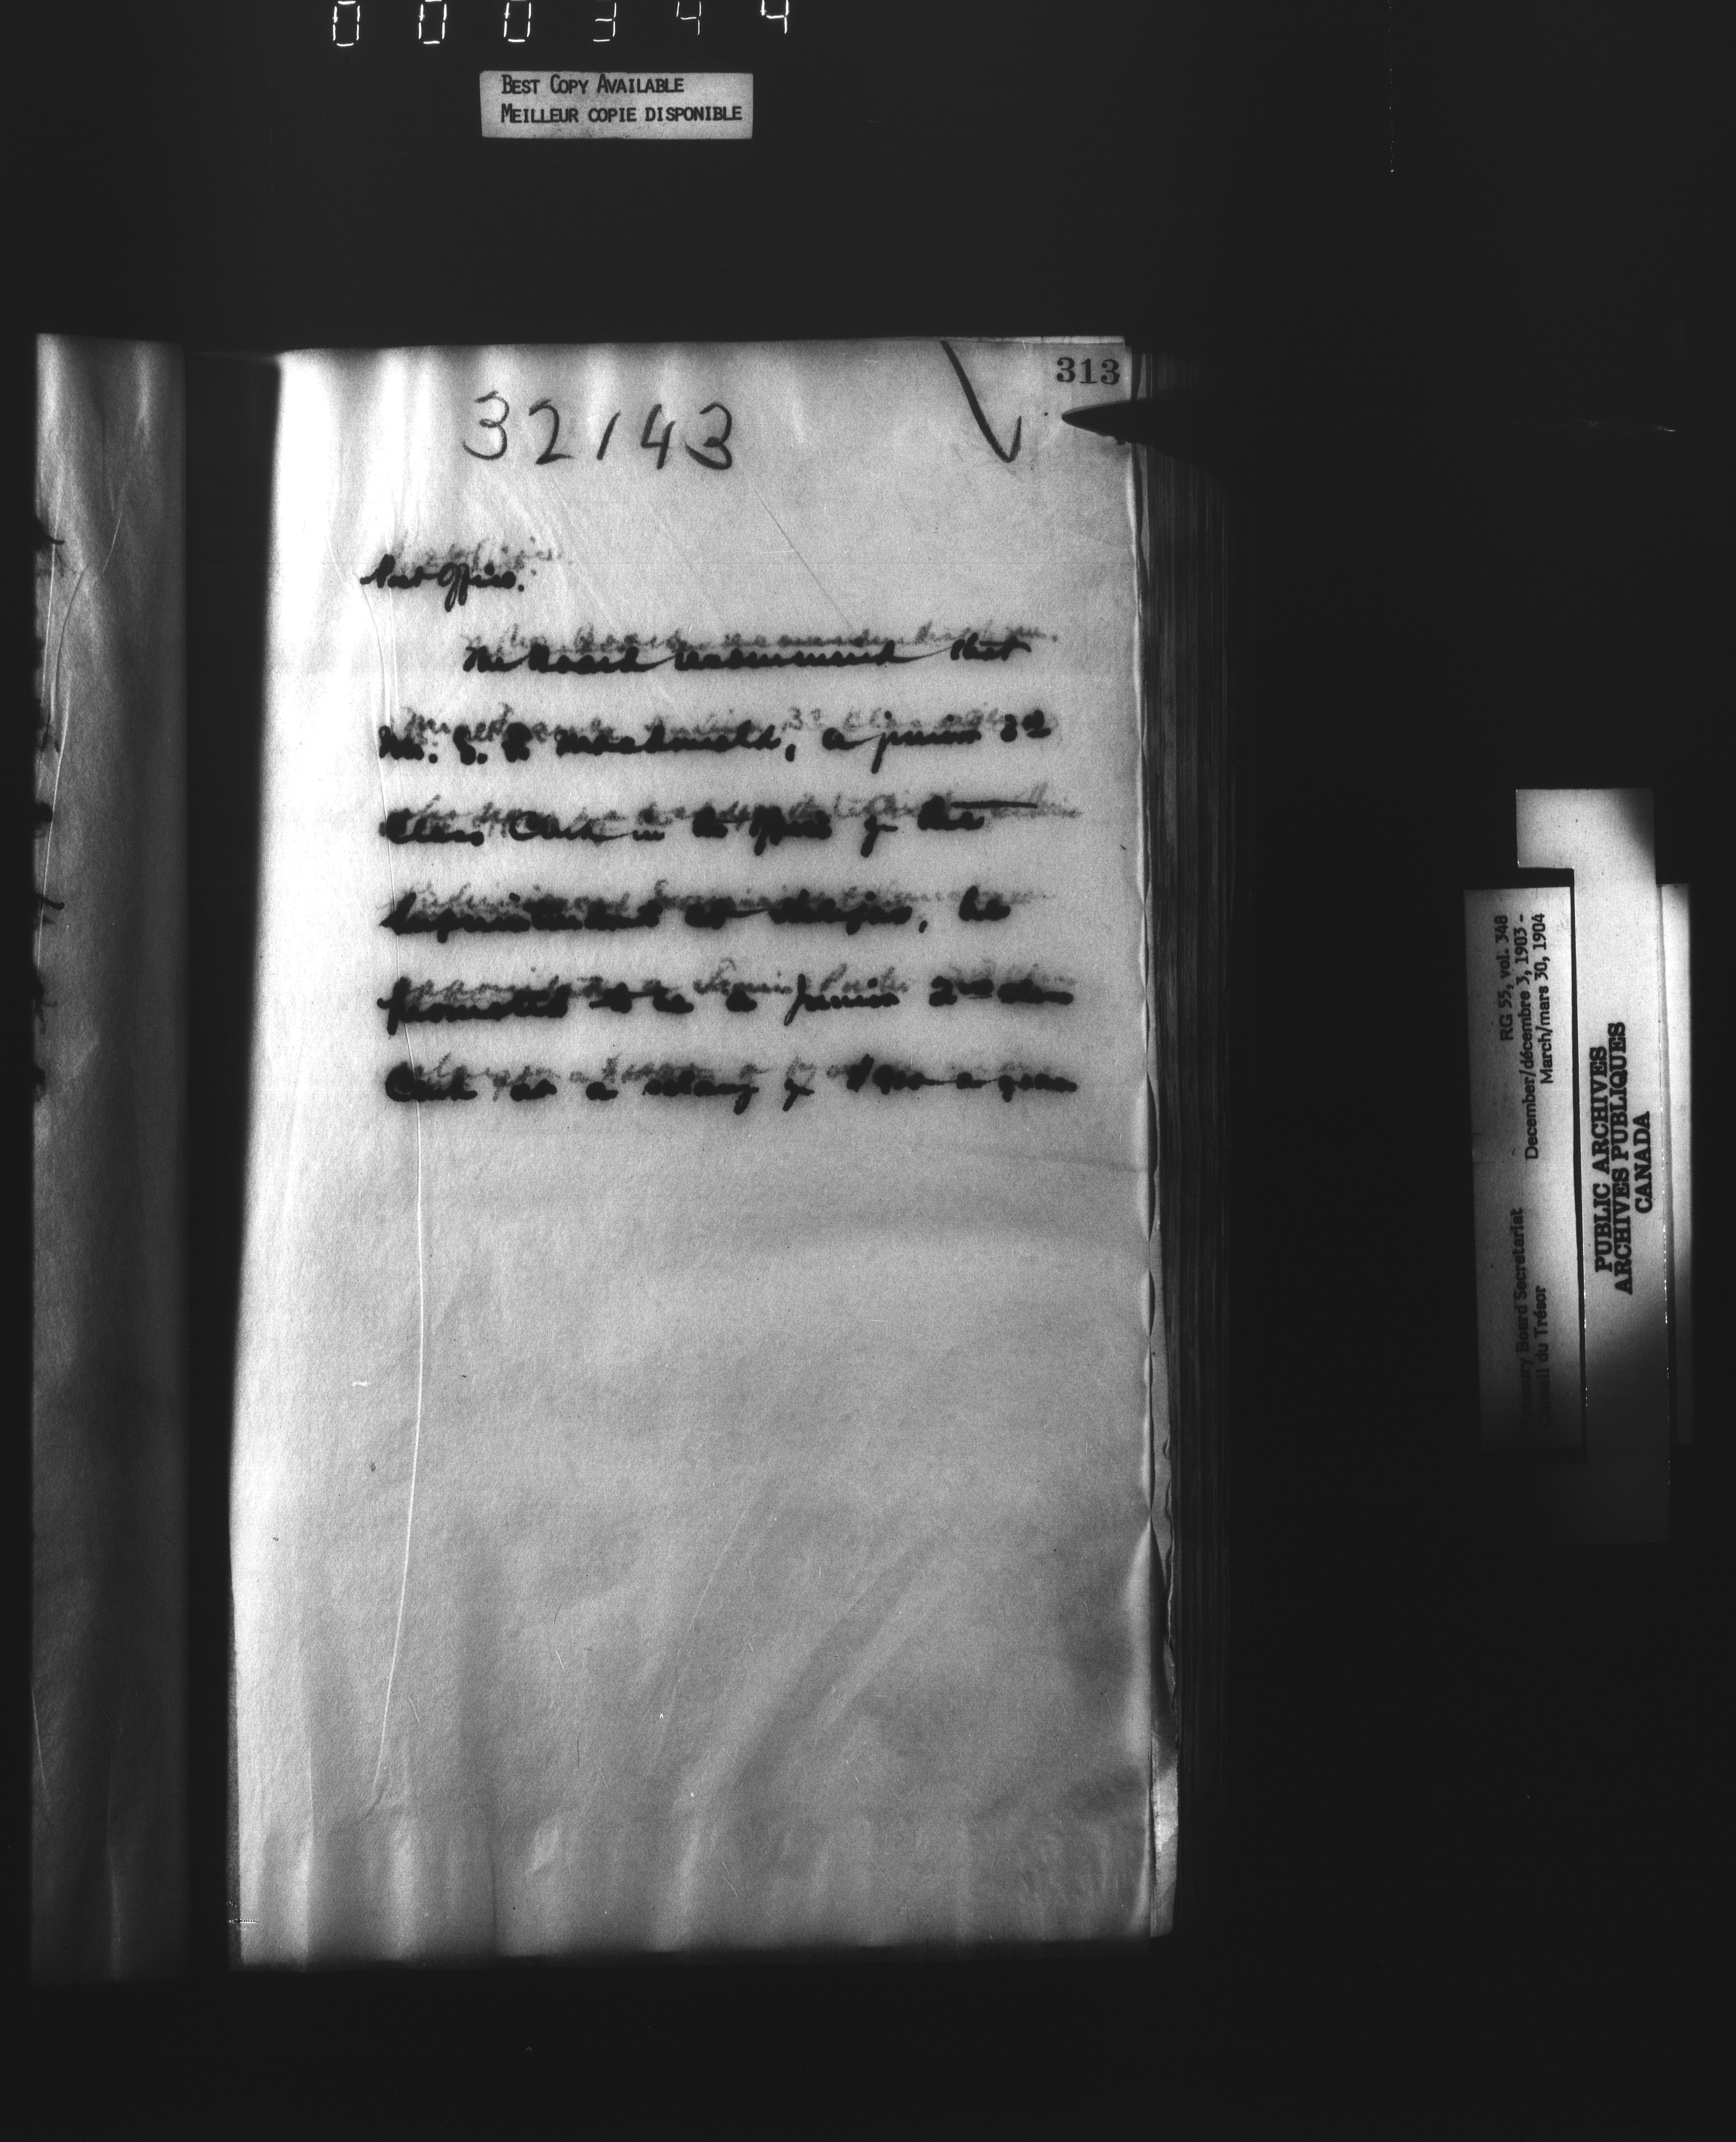 000344
BEST COPY AVAILABLE
MEILLEUR COPIE DISPONIBLE
313
32143
Post Office.
The Board recommend that
Mr. MacDonald, a junior 3rd
Class Clerk in the Office of the
Superintendent at, be
promoted to be a Junior 2nd class
Clerk at a salary of $900 a year
RG 55, vol. 348
December/décembre 3, 1903 -
March/mars 30, 1904
Board Secretariat
du Trésor
PUBLIC ARCHIVES
ARCHIVES PUBLIQUES
CANADA